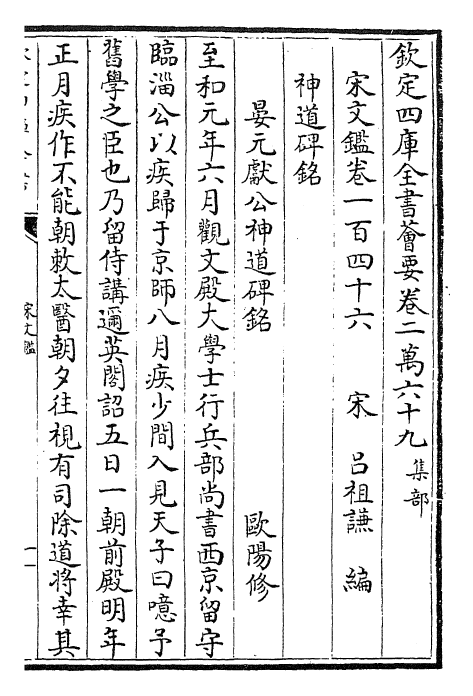 欽定四庫全書薈要卷二萬六十九 集部
宋文鑑卷一百四十六 宋 呂祖謙 編
神道碑銘
晏元獻公神道碑銘 歐陽修
至和元年六月觀文殿大學士行兵部尚書西京留守
臨淄公以疾歸于京師八月疾少間入見天子曰噫予
舊學之臣也乃留侍講邇英閣詔五日一朝前殿明年
正月疾作不能朝敕太醫朝夕往視有司除道將幸其
宋文鑑
一